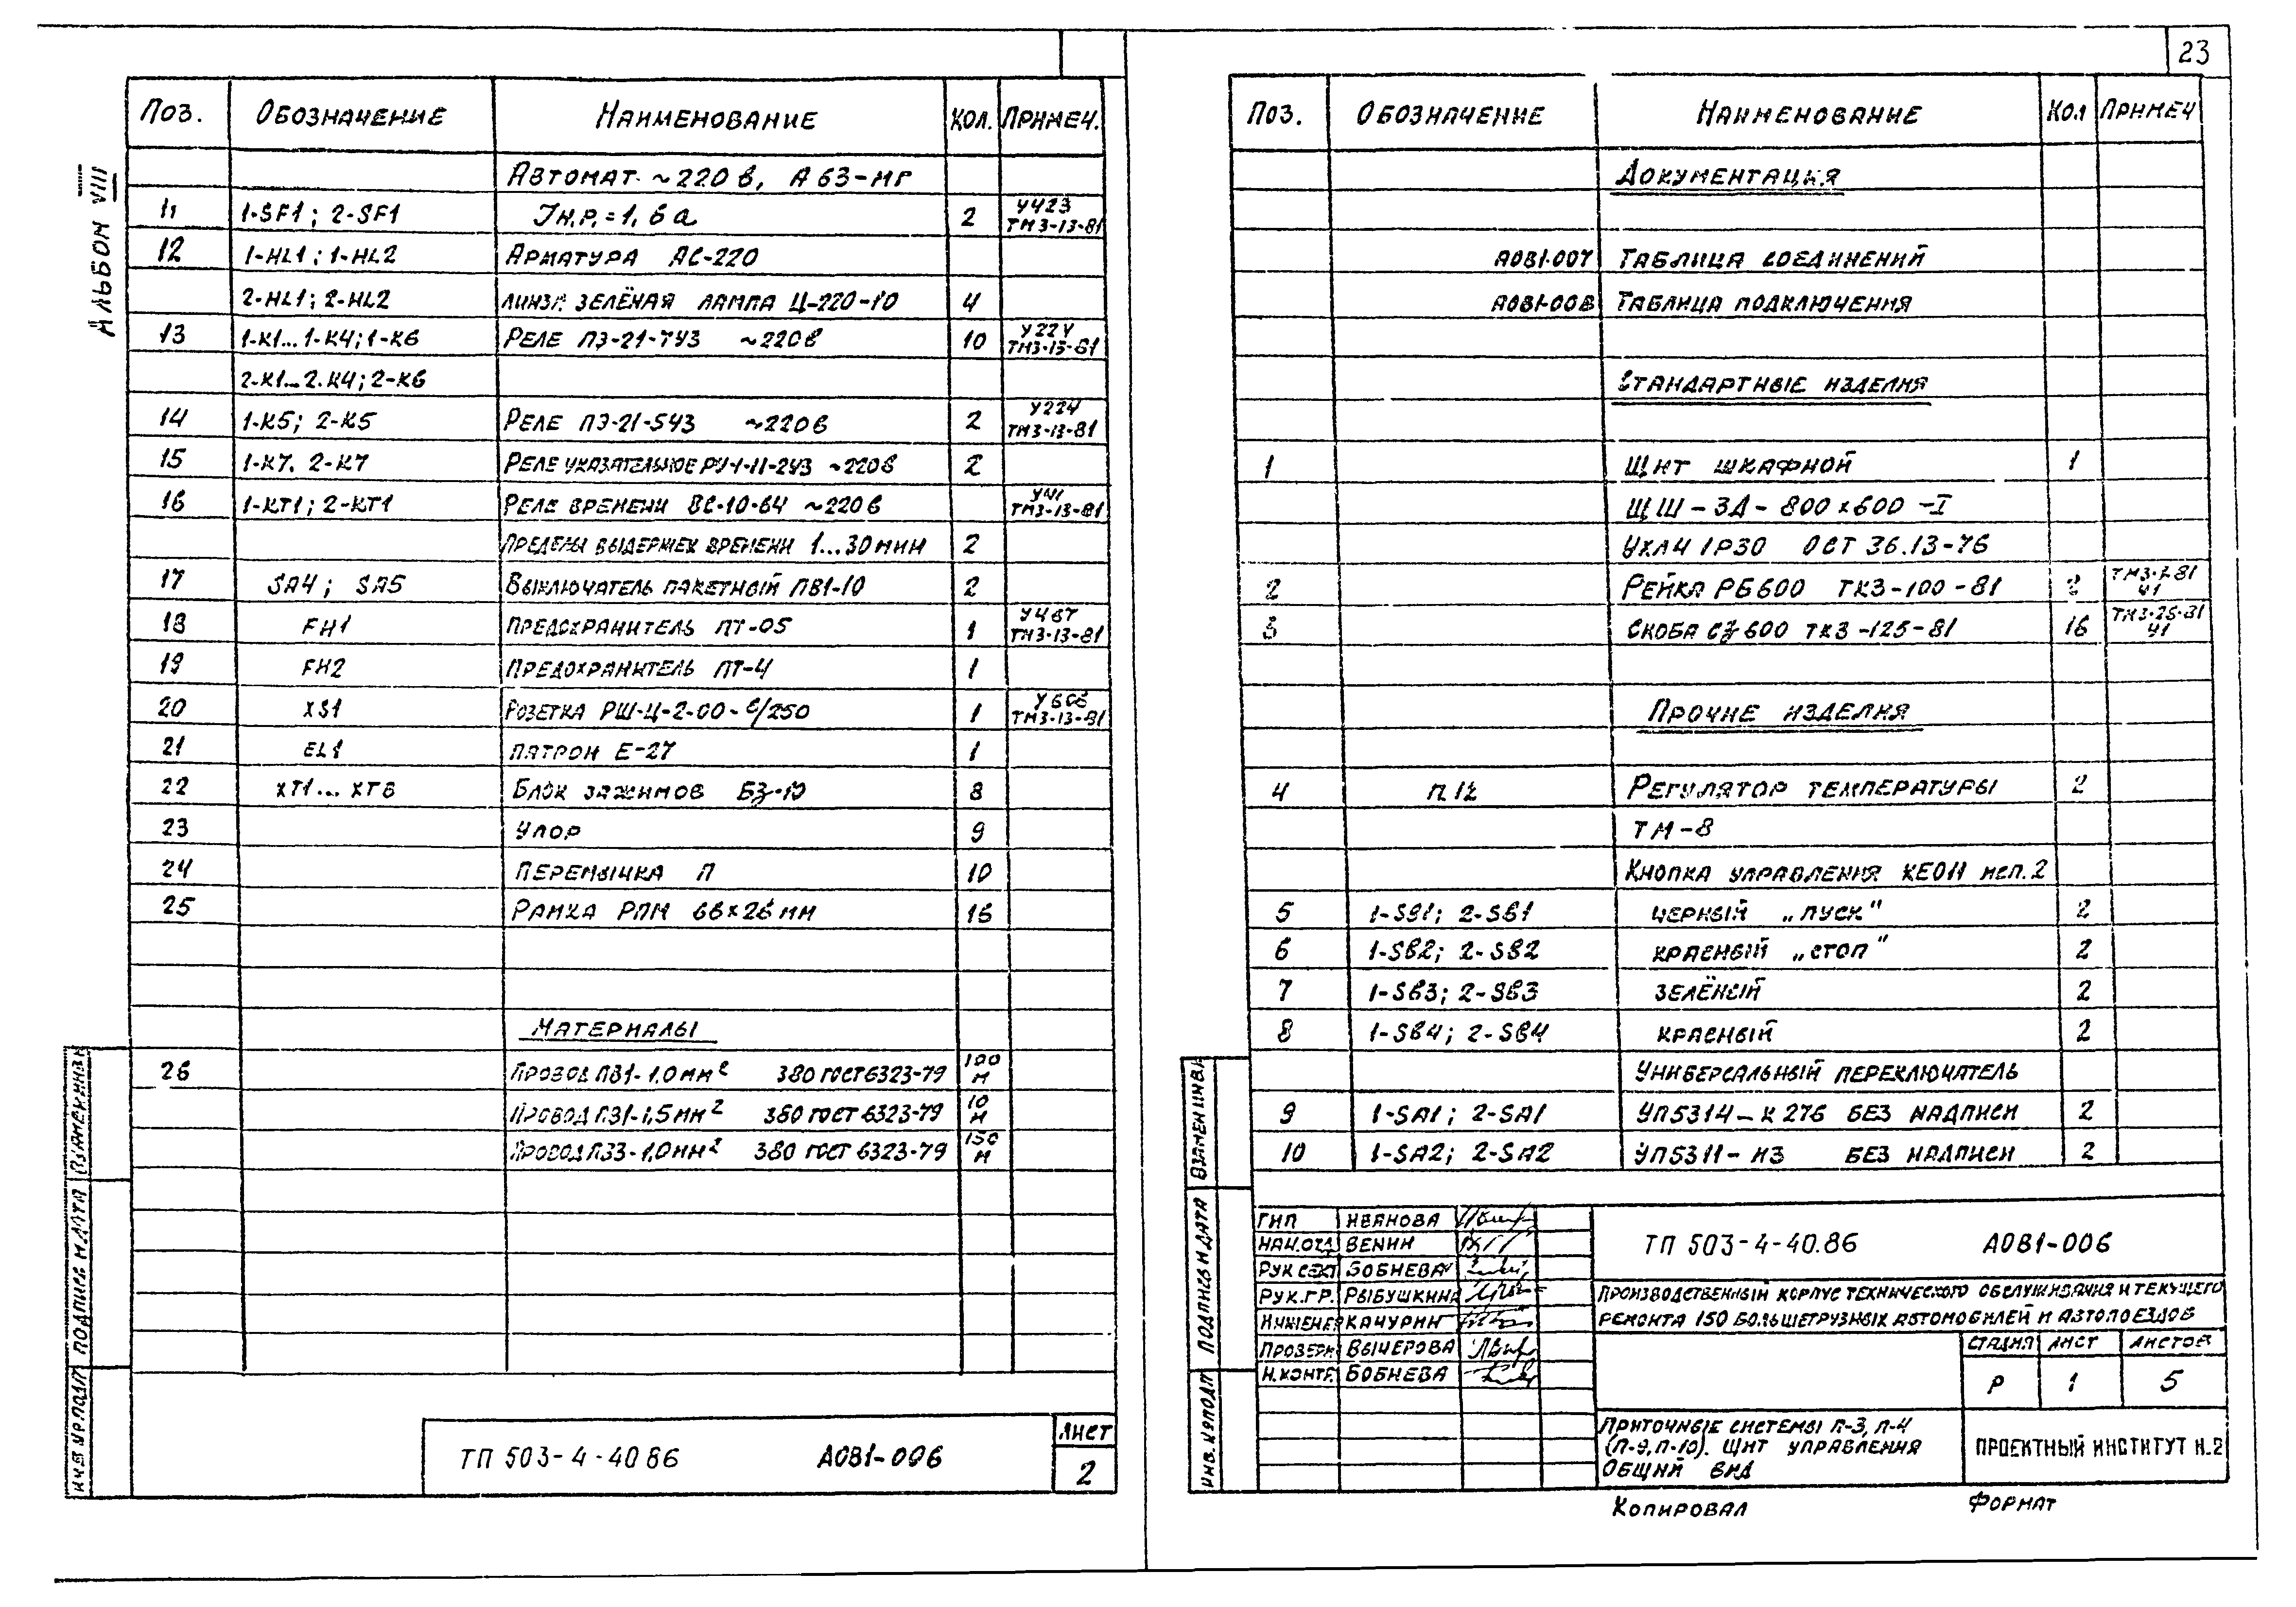 23
АЛЬБОМ VIII
ПОЗ. ОБОЗНАЧЕНИЕ НАИМЕНОВАНИЕ КОЛ. ПРИМЕЧ.
АВТОМАТ ~220 В, А63-МГ
11 1-SF1; 2-SF1 Iн.р.=1,6а 2 У423 ТМ3-13-81
12 1-HL1; 1-HL2 АРМАТУРА АС-220
2-HL1; 2-HL2 ЛИНЗА ЗЕЛЁНАЯ ЛАМПА Ц-220-10 4
13 1-К1...1-К4; 1-К6 РЕЛЕ ПЭ-21-7У3 ~220В 10 У224 ТМ3-13-81
2-К1...2-К4; 2-К6
14 1-К5; 2-К5 РЕЛЕ ПЭ-21-5У3 ~220В 2 У224 ТМ3-13-81
15 1-К7. 2-К7 РЕЛЕ УКАЗАТЕЛЬНОЕ РУ-1-11-2У3 ~220В 2
16 1-КТ1; 2-КТ1 РЕЛЕ ВРЕМЕНИ ВС-10-64 ~220В ТМ3-13-81
ПРЕДЕЛЫ ВЫДЕРЖЕК ВРЕМЕНИ 1...30 МИН 2
17 SA4; SA5 ВЫКЛЮЧАТЕЛЬ ПАКЕТНЫЙ ПВ1-10 2
18 FH1 ПРЕДОХРАНИТЕЛЬ ПТ-05 1 У467 ТМ3-13-81
19 FH2 ПРЕДОХРАНИТЕЛЬ ПТ-4 1
20 XS1 РОЗЕТКА РШ-Ц-2-00-6/250 1 ТМ3-13-81
21 EL1 ПАТРОН Е-27 1
22 ХТ1... ХТ8 БЛОК ЗАЖИМОВ БЗ-10 8
23 УПОР 9
24 ПЕРЕМЫЧКА П 10
25 РАМКА РПМ 66×26 ММ 16
МАТЕРИАЛЫ
26 ПРОВОД ПВ1-1,0 ММ² 380 ГОСТ 6323-79 100 М
ПРОВОД ПВ1-1,5 ММ² 380 ГОСТ 6323-79 10 М
ПРОВОД ПВ3-1,0 ММ² 380 ГОСТ 6323-79 150 М
ТП 503-4-40 86 А081-006 ЛИСТ 2
ИНВ.№ ПОДЛ ПОДПИСЬ И ДАТА ВЗАМЕН ИНВ.№
ПОЗ. ОБОЗНАЧЕНИЕ НАИМЕНОВАНИЕ КОЛ ПРИМЕЧ
ДОКУМЕНТАЦИЯ
А081-007 ТАБЛИЦА СОЕДИНЕНИЙ
А081-008 ТАБЛИЦА ПОДКЛЮЧЕНИЯ
СТАНДАРТНЫЕ ИЗДЕЛИЯ
1 ЩИТ ШКАФНОЙ 1
ЩШ-ЗД-800×600-I
УХЛ4 IP30 ОСТ 36.13-76
2 РЕЙКА РБ600 ТК3-100-81 2
3 СКОБА СЗ 600 ТК3-125-81 16 ТМ3-25-81 У1
ПРОЧИЕ ИЗДЕЛИЯ
4 П.12 РЕГУЛЯТОР ТЕМПЕРАТУРЫ 2
ТМ-8
КНОПКА УПРАВЛЕНИЯ КЕ011 ИСП.2
5 1-SB1; 2-SB1 ЧЕРНЫЙ „ПУСК" 2
6 1-SB2; 2-SB2 КРАСНЫЙ „СТОП" 2
7 1-SB3; 2-SB3 ЗЕЛЁНЫЙ 2
8 1-SB4; 2-SB4 КРАСНЫЙ 2
УНИВЕРСАЛЬНЫЙ ПЕРЕКЛЮЧАТЕЛЬ
9 1-SA1; 2-SA1 УП5314-К276 БЕЗ НАДПИСИ 2
10 1-SA2; 2-SA2 УП5311-И3 БЕЗ НАДПИСИ 2
ГИП ИВАНОВА
НАЧ.ОТД ВЕНИН
РУК СЕКТ БОБНЕВА
РУК.ГР. РЫБУШКИНА
ИНЖЕНЕР КАЧУРИН
ПРОВЕРИЛ ВЫЧЕРОВА
Н.КОНТР. БОБНЕВА
ТП 503-4-40.86 А081-006
ПРОИЗВОДСТВЕННЫЙ КОРПУС ТЕХНИЧЕСКОГО ОБСЛУЖИВАНИЯ И ТЕКУЩЕГО
РЕМОНТА 150 БОЛЬШЕГРУЗНЫХ АВТОМОБИЛЕЙ И АВТОПОЕЗДОВ
СТАДИЯ ЛИСТ ЛИСТОВ
Р 1 5
ПРИТОЧНЫЕ СИСТЕМЫ П-3, П-4
(П-9, П-10). ЩИТ УПРАВЛЕНИЯ
ОБЩИЙ ВИД
ПРОЕКТНЫЙ ИНСТИТУТ №2
ИНВ.№ ПОДЛ ПОДПИСЬ И ДАТА ВЗАМЕН ИНВ.№
КОПИРОВАЛ ФОРМАТ